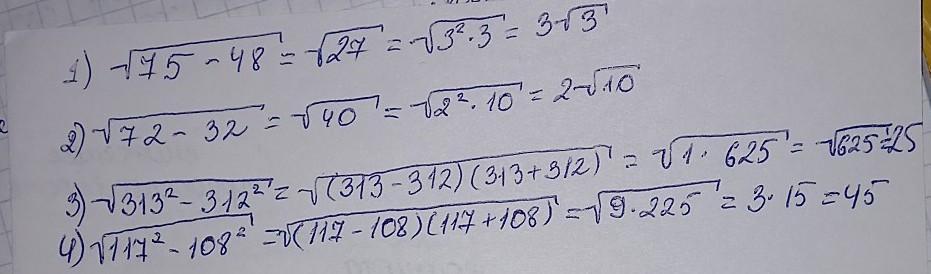 1) √75 - 48 = √27 = √3²·3 = 3√3
2) √72 - 32 = √40 = √2²·10 = 2√10
3) √313² - 312² = √(313 - 312)(313 + 312) = √1·625 = √625 = 25
4) √117² - 108² = √(117 - 108)(117 + 108) = √9·225 = 3·15 = 45